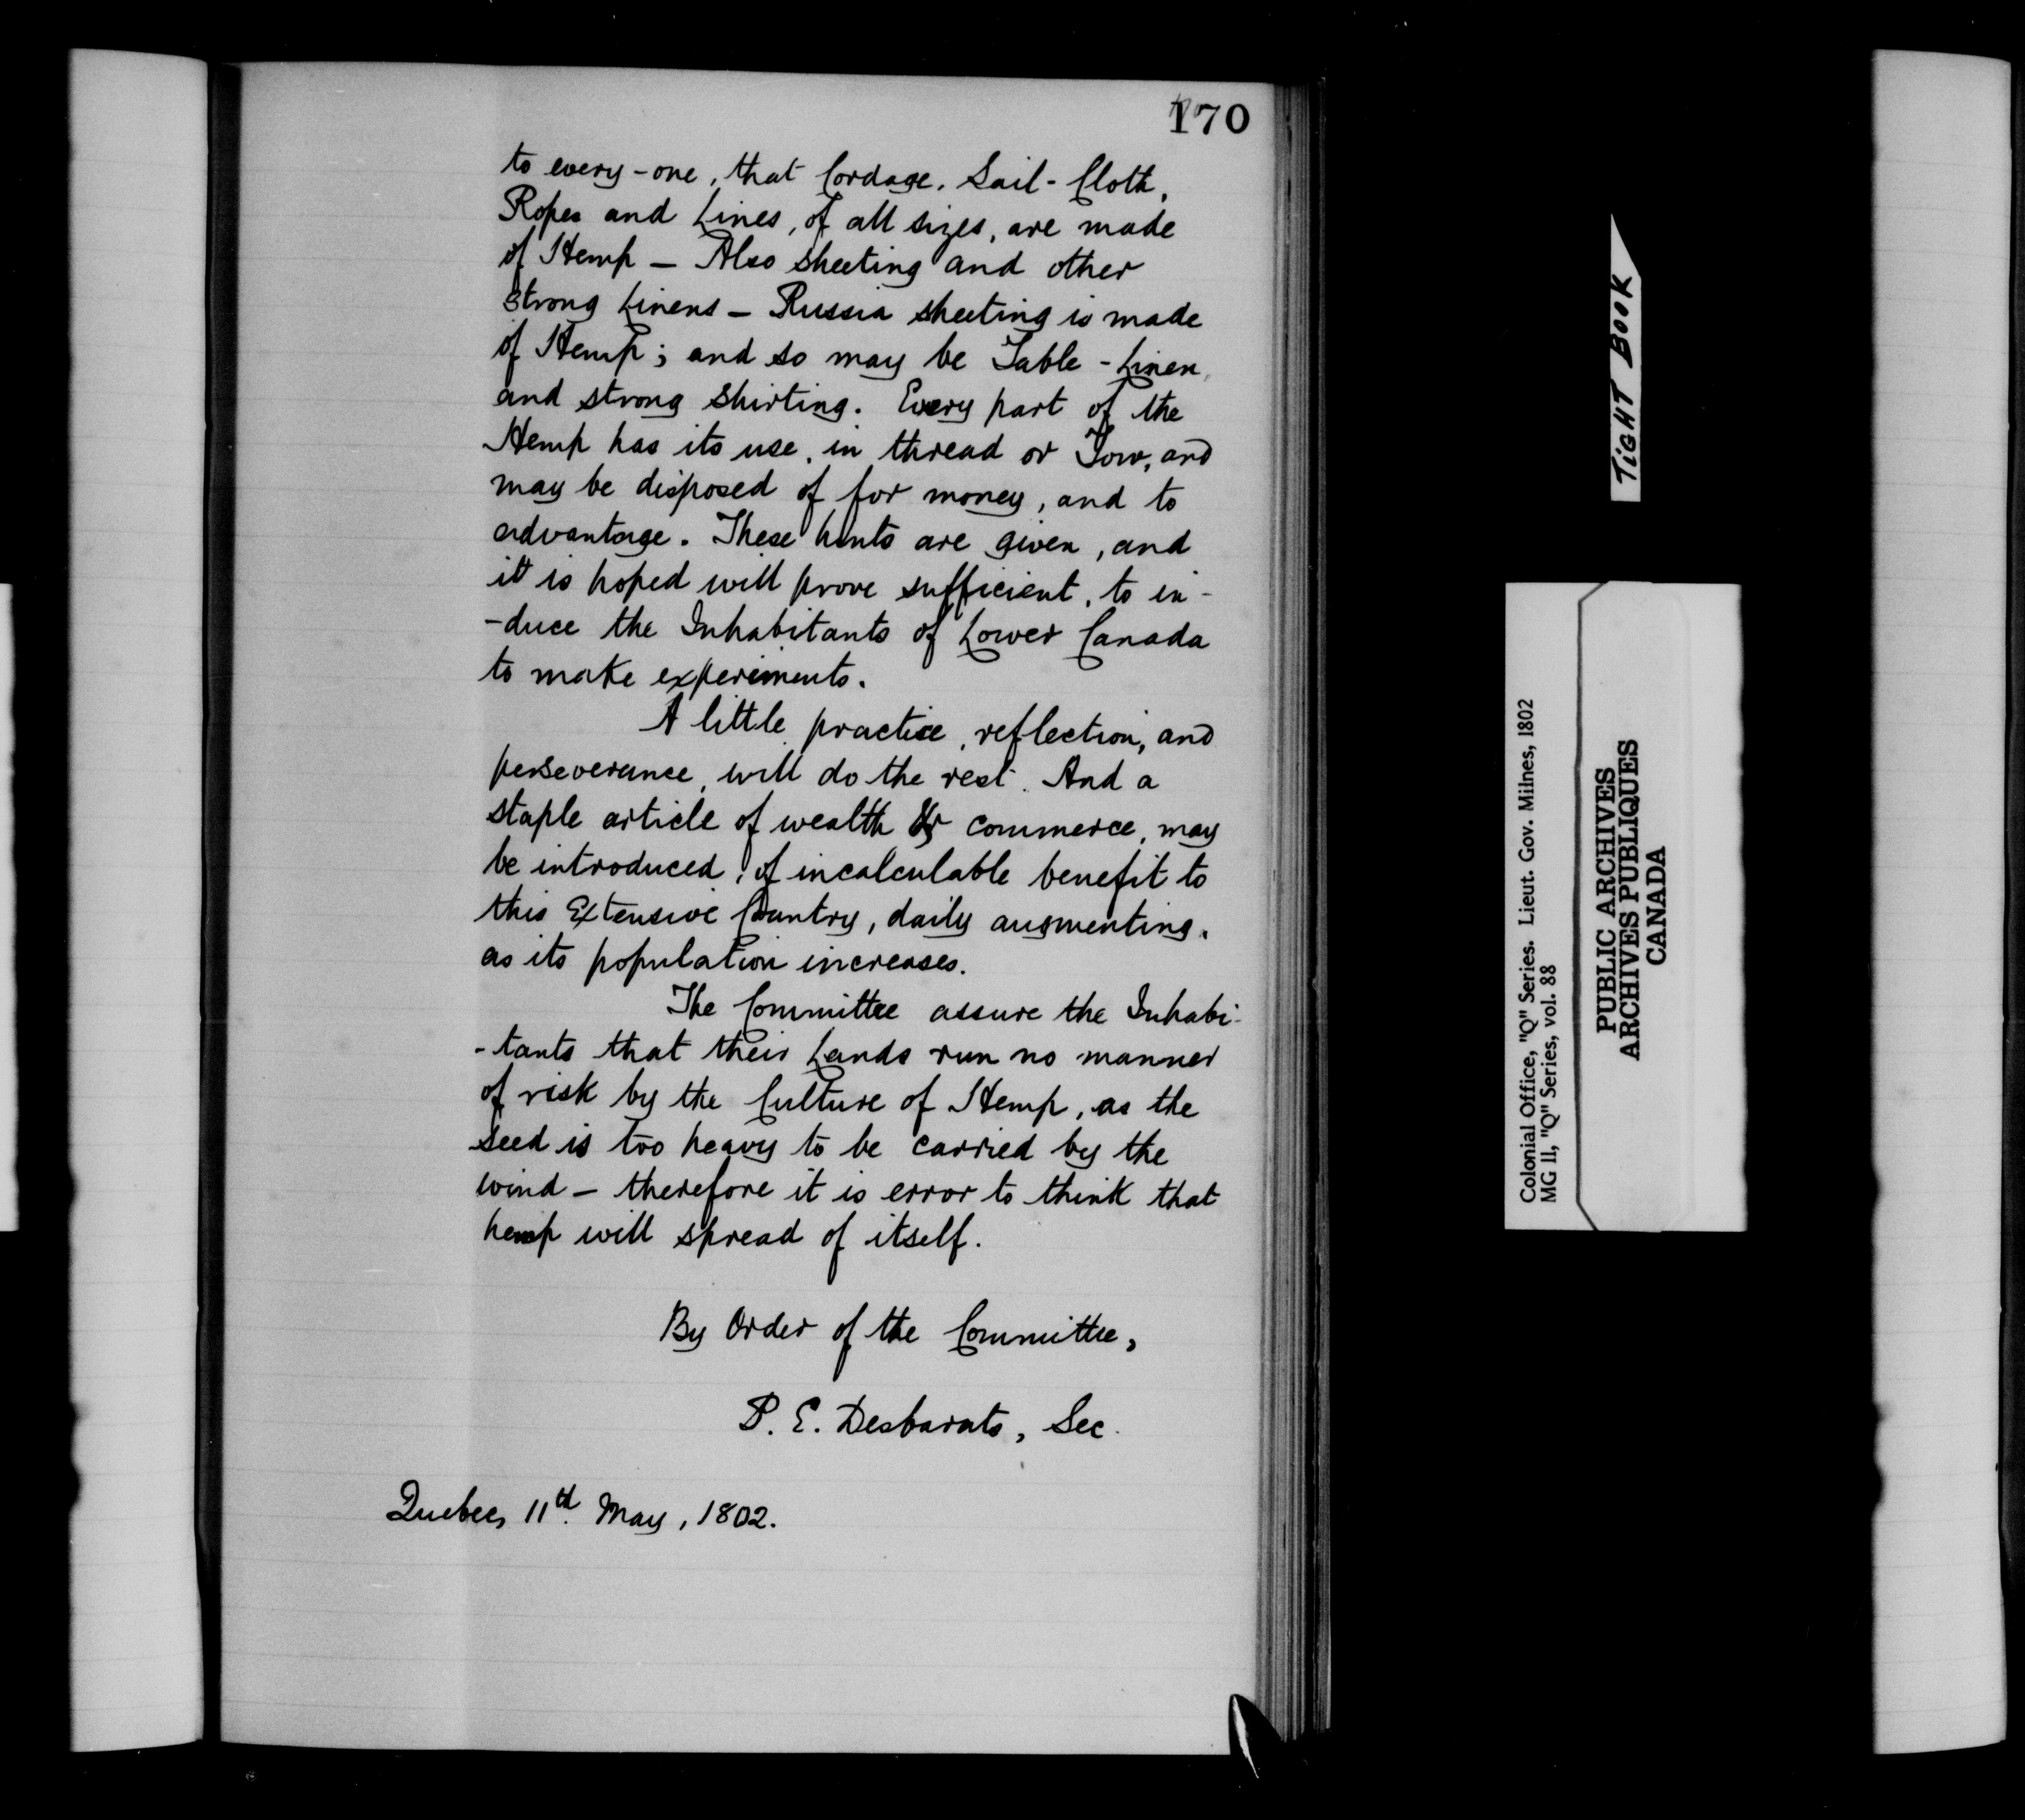 170
to every-one, that Cordage, Sail-Cloth,
Ropes and Lines, of all sizes, are made
of Hemp – Also sheeting and other
strong Linens – Russia sheeting is made
of Hemp; and so may be Table-Linen,
and strong shirting. Every part of the
Hemp has its use, in thread or Tow, and
may be disposed of for money, and to
advantage. These hints are given, and
it is hoped will prove sufficient, to in-
-duce the Inhabitants of Lower Canada
to make experiments.
A little practice, reflection, and
perseverance, will do the rest. And a
staple article of wealth & commerce, may
be introduced, of incalculable benefit to
this Extensive Country, daily augmenting,
as its population increases.
The Committee assure the Inhabi-
-tants that their Lands run no manner
of risk by the Culture of Hemp, as the
seed is too heavy to be carried by the
wind – therefore it is error to think that
hemp will spread of itself.
By Order of the Committee,
P. E. Desbarats, Sec.
Quebec, 11th May, 1802.
TIGHT BOOK
Colonial Office, "Q" Series. Lieut. Gov. Milnes, 1802
MG 11, "Q" Series, vol. 88
PUBLIC ARCHIVES
ARCHIVES PUBLIQUES
CANADA